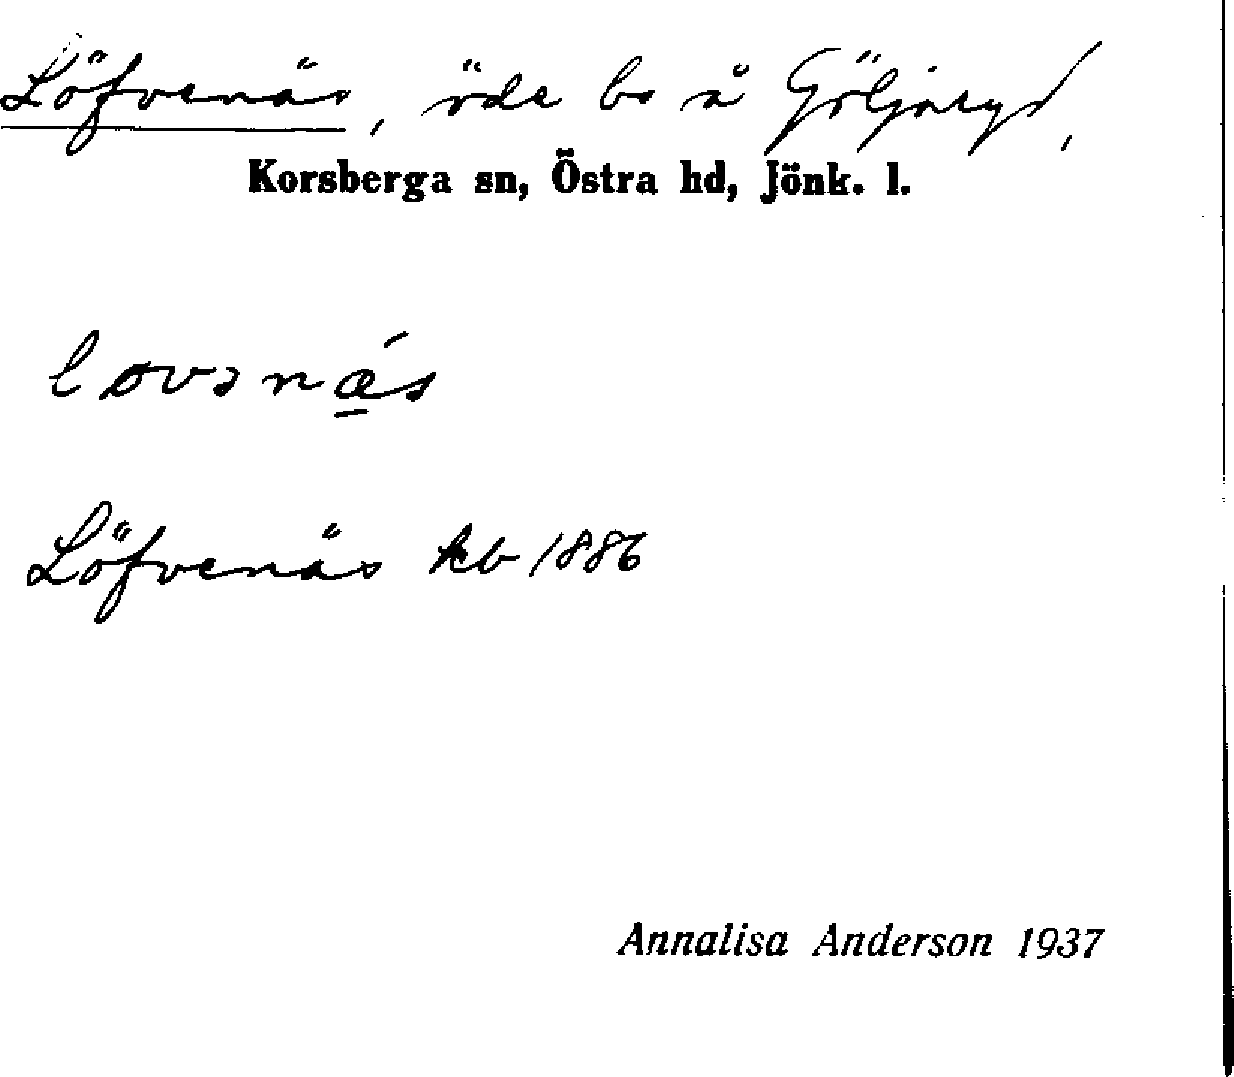 Löfvenäs, öde bs å Göljaryd,
Korsberga sn, Östra hd, Jönk. l.
Löfvenäs kb 1886
Annalisa Anderson 1937